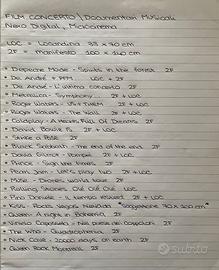 FILM CONCERTO / Documentari Musicali
Nexo Digital, Microcinema
LOC = Locandina 33 x 70 cm
2F = Manifesto 100 x 140 cm
• Depeche Mode - Spirits in the forest 2F
• De André + PFM LOC + 2F
• De André - L'ultimo concerto 2F
• Metallica - Symphony 2F + LOC
• Roger Waters - Us + Them 2F + LOC
• Roger Waters - The Wall 2F + LOC
• Coldplay - A Head Full Of Dreams 2F
• David Bowie Is 2F + LOC
• Strike a Pose 2F
• Black Sabbath - The end of the end 2F
• David Gilmour - Pompei 2F + LOC
• Prince - Sign the times 2F
• Pearl Jam - Let's play two 2F + LOC
• Muse - Drones world tour 2F
• Rolling Stones Olé Olé Olé LOC
• Pino Daniele - Il tempo resterà 2F + LOC
• Kiss Rocks Vegas Nevada 70 x 100 cm
• Queen - A night in Bohemia 2F
• Vinicio Capossela - Nel paese dei Coppoloni 2F
• The Who - Quadrophenia 2F
• Nick Cave - 20000 days on earth 2F
• Queen Rock Montreal 2F
subito